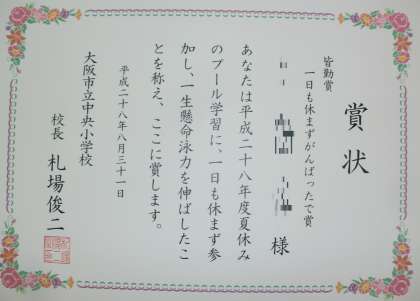 賞状
皆勤賞
一日も休まずがんばったで賞
様
あなたは平成二十八年度夏休み
のプール学習に、一日も休まず参
加し、一生懸命泳力を伸ばしたこ
とを称え、ここに賞します。
平成二十八年八月三十一日
大阪市立中央小学校
校長 札場俊二